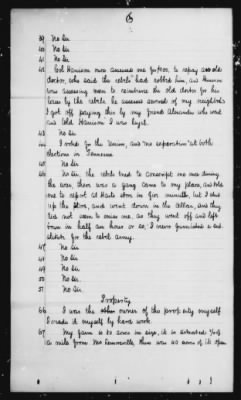 39 No Sir
40 No Sir
41 No Sir
42 Col Harrison once assessed me to repay an old
doctor, who said the rebels had robbed him, and Harrison
was assessing men to reimburse the old doctor for his
losses by the rebels he assessed several of my neighbors
I got off paying this by my friend Alexander who went
and told Harrison I was loyal.
43 No Sir
44 I voted for the Union, and no seperation at both
elections in Tennessee
45 No Sir
46 No Sir, the rebels tried to conscript me once during
the war, there was a gang came to my place, and told
me to report at once in five minutes, but I slid
up the and went down in the cellar, and they
did not seem to mind me, as they went off and left
town in half an hour or so, I never furnished a sub
stitute for the rebel army.
47 No Sir
48 No Sir
49 No Sir
50 No Sir.
51 No Sir.
Property
66 I was the owner of the property myself
I made it myself by hard work
67 My farm is 80 acres in size, it is situated
a mile from there was 40 acres of it open